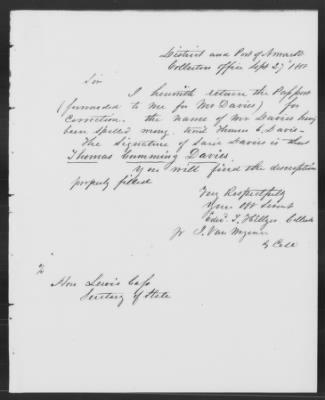 District and Port of Newark
Collectors Office Sept 27
Sir
I herewith return the Passport
(forwarded to me for Mr Davies) for
Correction. the name of Mr Davies having
been spelled wrong
The Signature of Said Davies is thus
Thomas Cumming Davies.
You will find the description
properly filled
Very Respectfully
Your Obt Servt
Edwd. T. Hillyer Collector
Pr J. Van Wagenen
Dy Coll
To
Hon Lewis Cass
Secretary of State